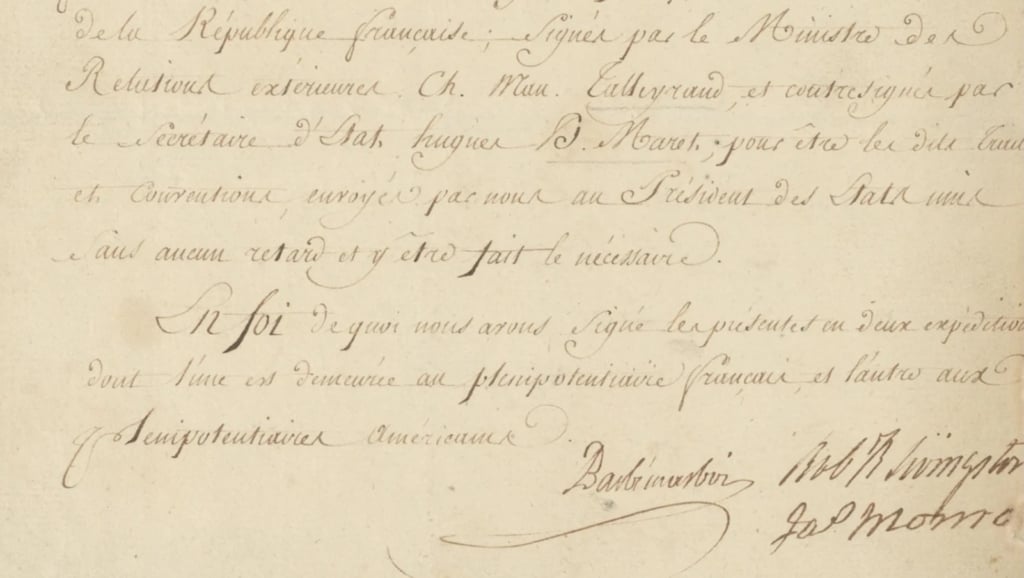 de la République française; Signés par le Ministre des
Relations extérieures Ch. Mau. Talleyrand, et contresignés par
le Secrétaire d'Etat hugues B. Maret; pour être les dits
et Conventions envoyés par nous au Président des Etats unis
sans aucun retard et y être fait le nécessaire.
En foi de quoi nous avons signé les présentes en deux
dont l'une est demeurée au plenipotentiaire français et l'autre aux
plenipotentiaires américains.
Barbé marbois Rob R Livingston
Jas Monro